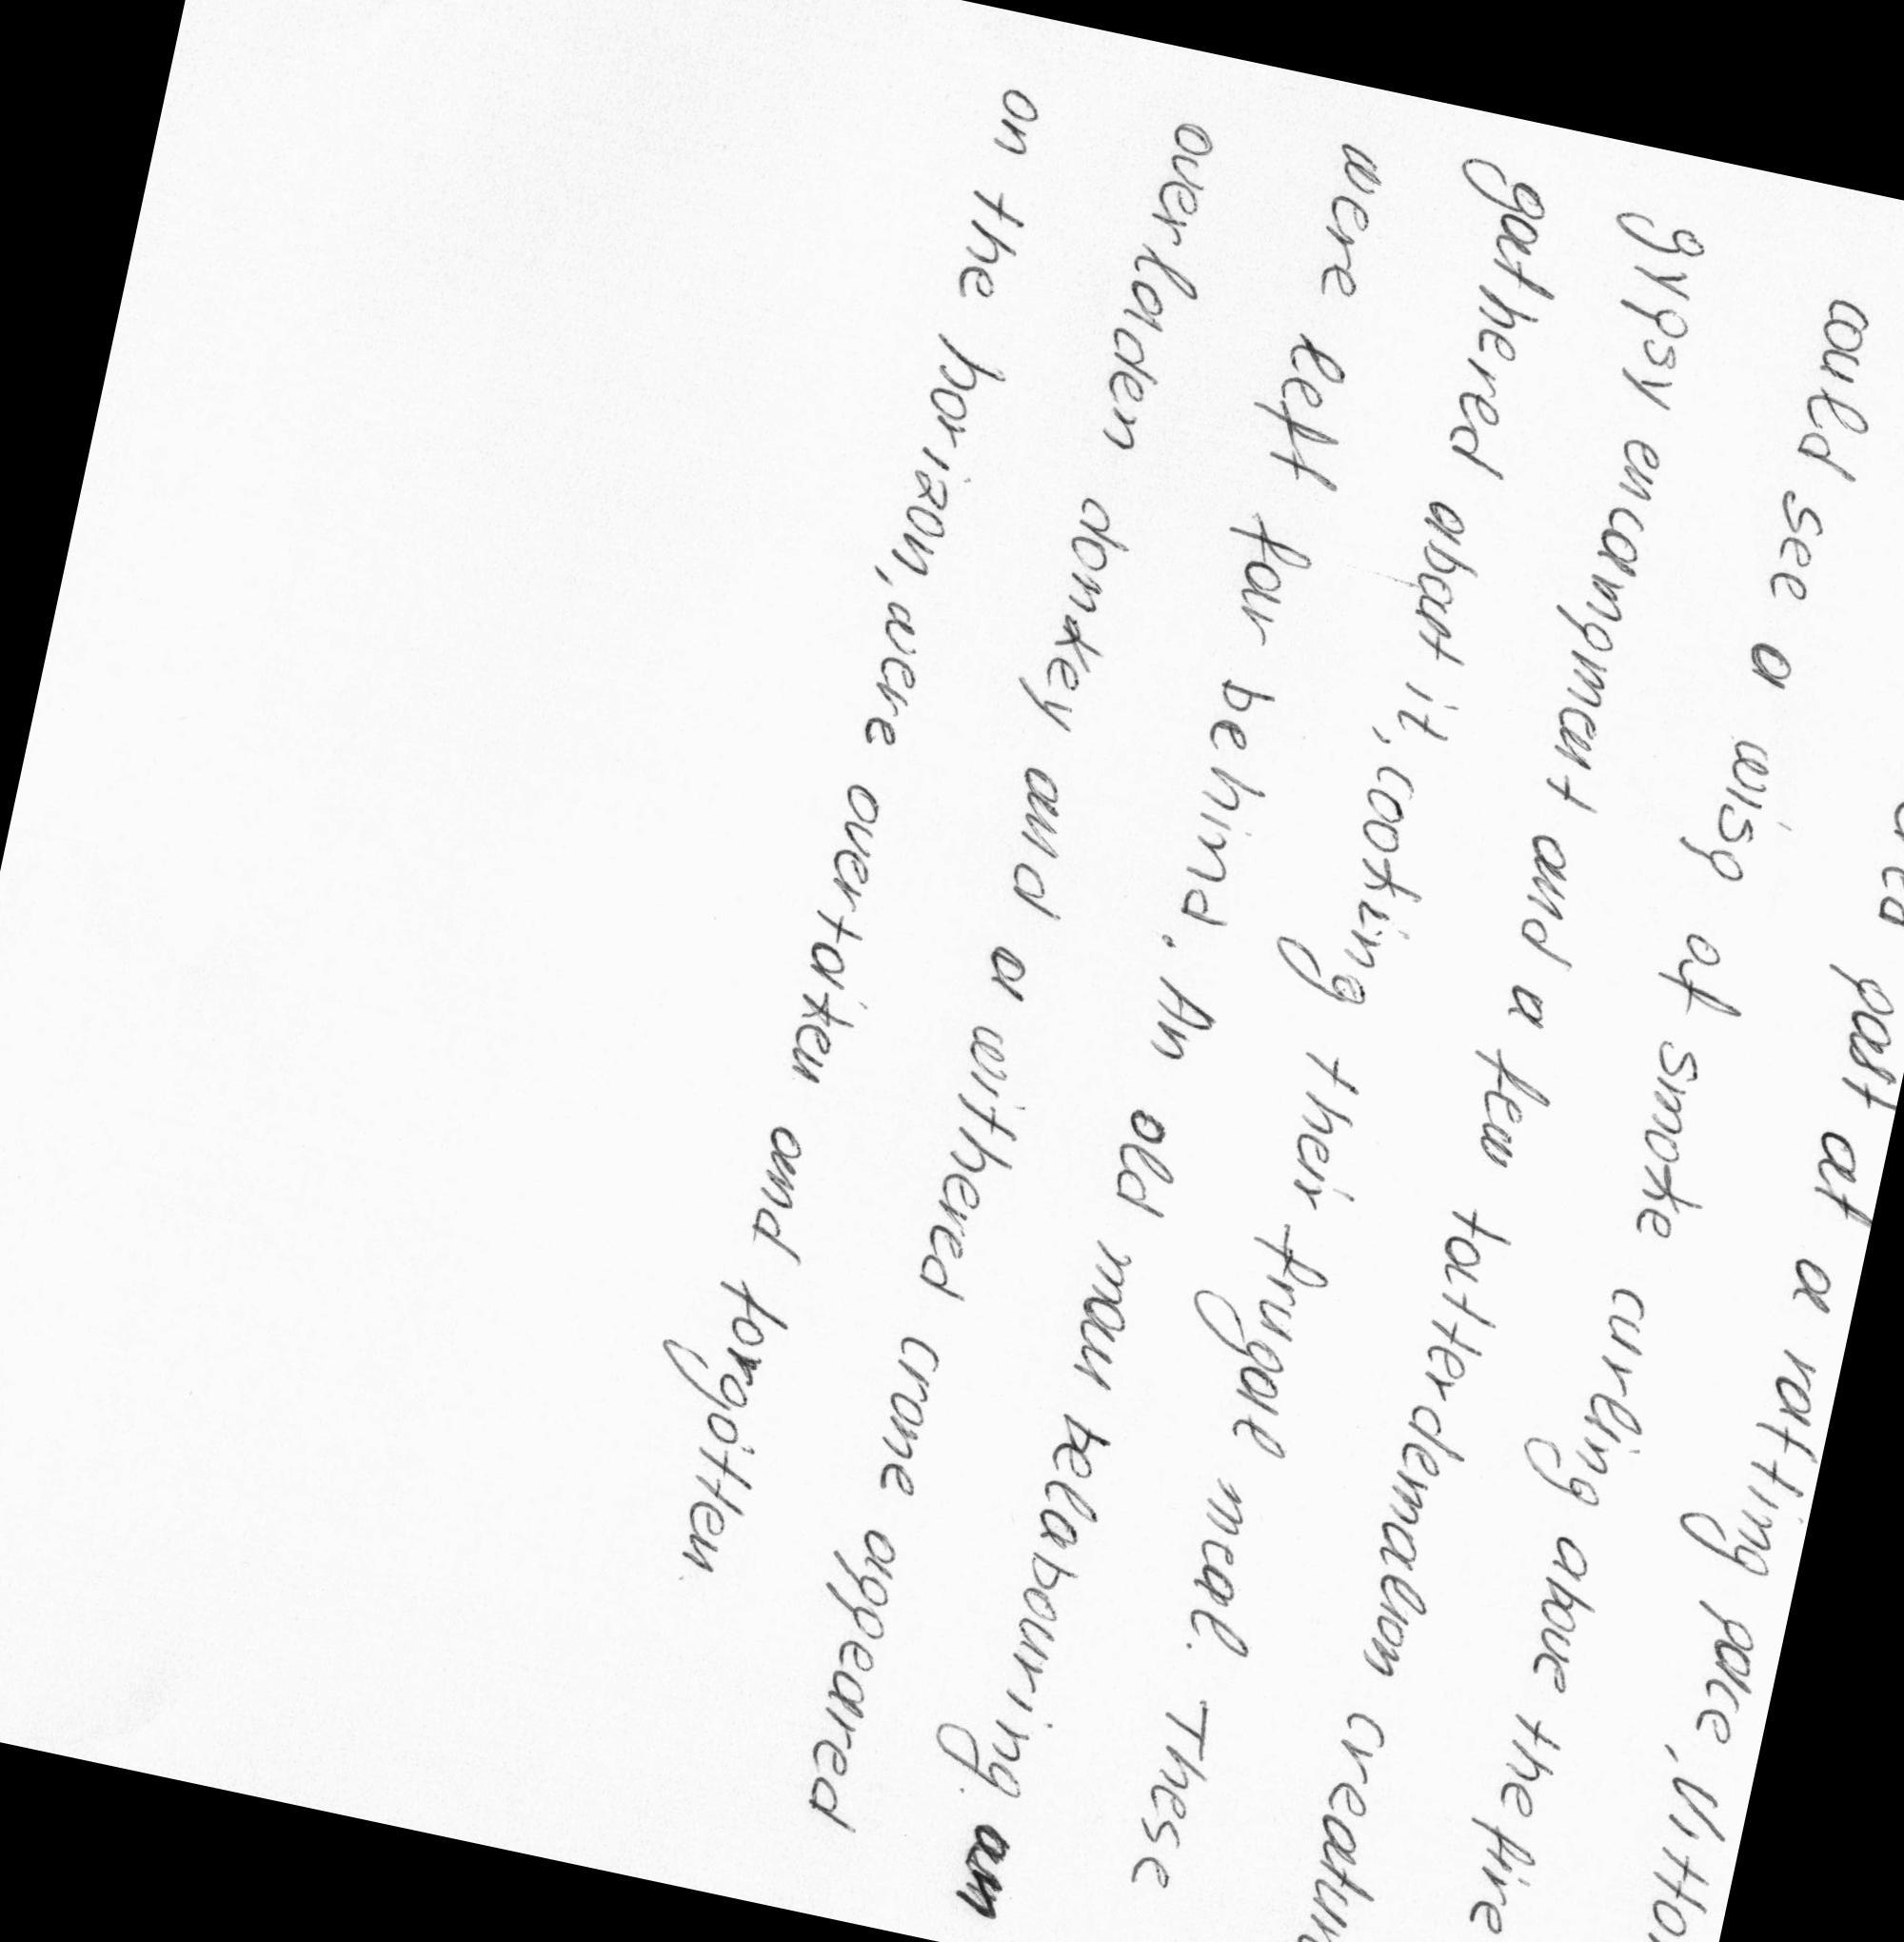 past at a rattling pace, Vitto
could see a wisp of smoke curling above the fire
gypsy encampment and a few tatterdemalion creatur
gathered about it, cooking their frugal meal. These
were left far behind. An old man belabouring an
overladen donkey and a withered crone appeared
on the horizon, were overtaken and forgotten.